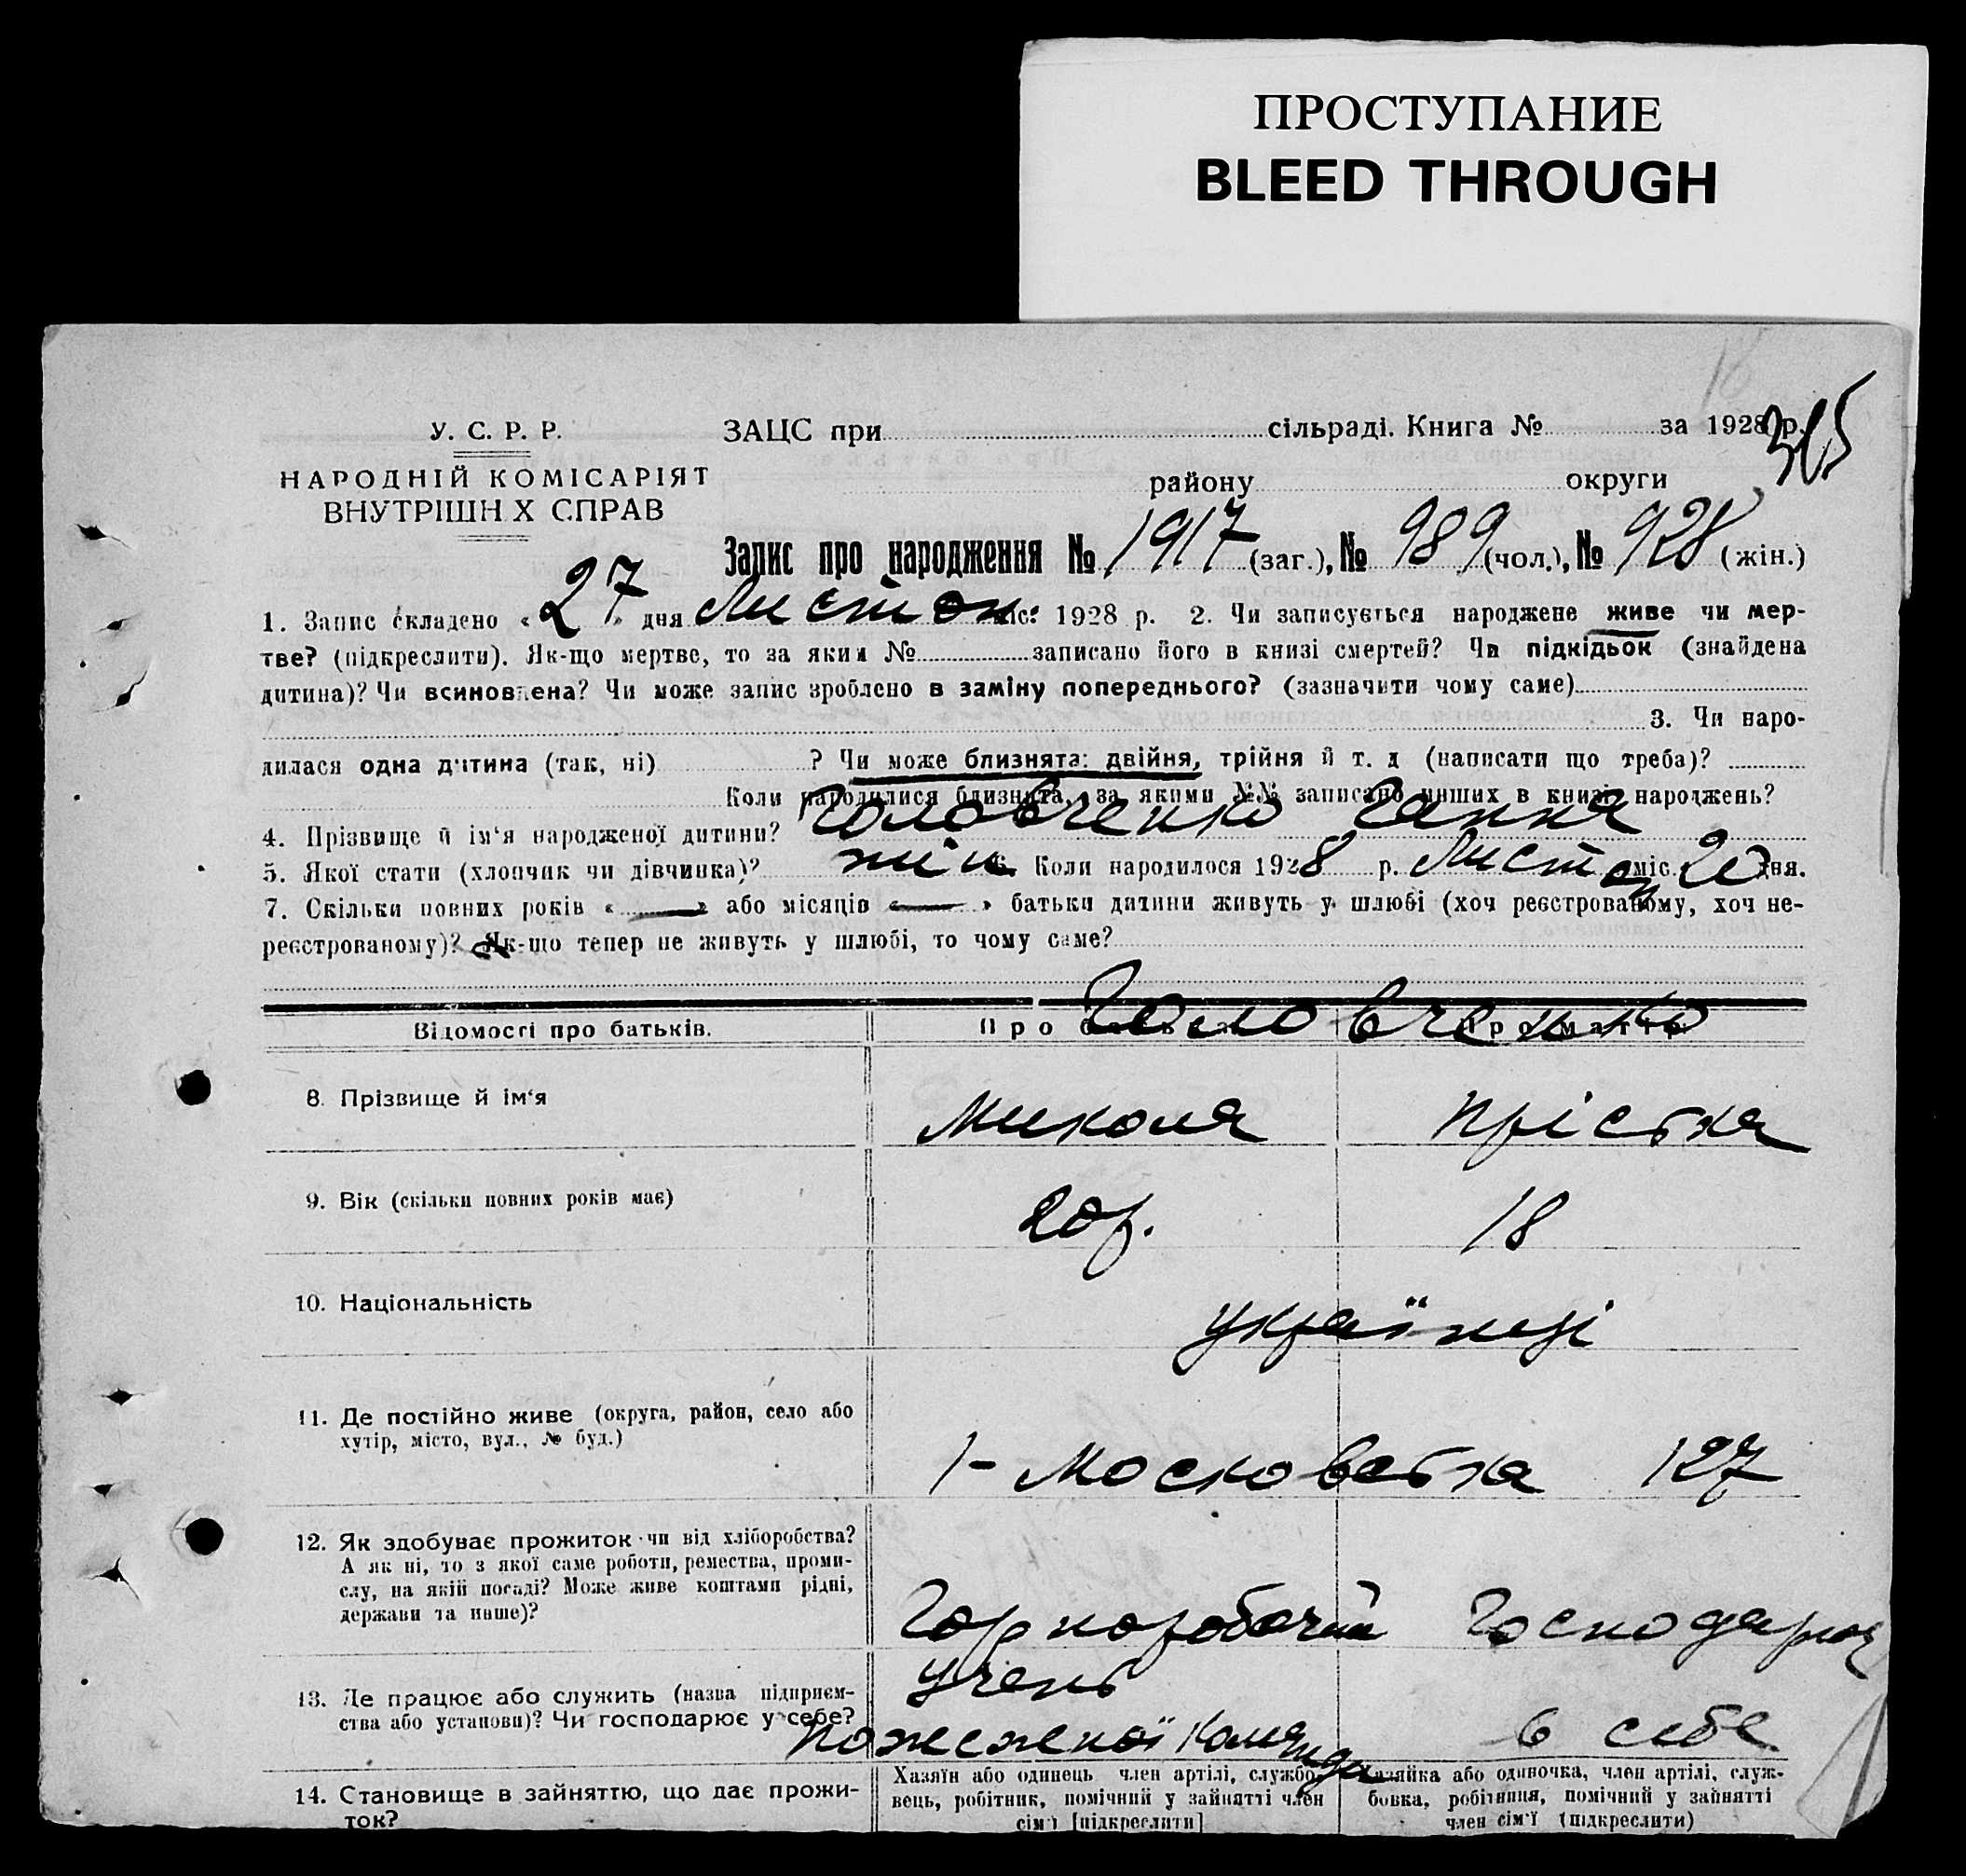 ПРОСТУПАНИЕ
BLEED THROUGH
365
У. С. Р. Р.
НАРОДНІЙ КОМІСАРІЯТ
ВНУТРІШН Х СПРАВ
ЗАЦС при сільраді. Книга № за 1928 р.
району округи
Запис про народження № 1917 (заг.), № 989 (чол.), № 928 (жін.)
1. Запис складено «27» дня Листоп міс. 1928 р. 2. Чи записується народжене живе чи мер-
тве? (підкреслити). Як-що мертве, то за яким № записано його в книзі смертей? Чи підкідьок (знайдена
дитина)? Чи всиновлена? Чи може запис зроблено в заміну попереднього? (зазначити чому саме)
3. Чи наро-
дилася одна дитина (так, ні) ? Чи може близнята: двійня, трійня й т. д (написати що треба)?
Коли народилися близнята, за якими №№ записано инших в книзі народжень?
4. Прізвище й ім‘я народженої дитини? Головченко Ганна
5. Якої стати (хлопчик чи дівчинка)? жін 6. Коли народилося 1928 р. Листоп міс. 20 дня.
7. Скільки повних років « — » або місяців « — » батьки дитини живуть у шлюбі (хоч реєстрованому, хоч не-
реєстрованому)? Як-що тепер не живуть у шлюбі, то чому саме?
Відомості про батьків. Про батька Про матір
Головченко
8. Прізвище й ім‘я Микола Пріська
9. Вік (скільки повних років має) 20 р. 18
10. Національність українці
11. Де постійно живе (округа, район, село або
хутір, місто, вул., № буд.)
1 - Московська 127
12. Як здобуває прожиток чи від хліборобства?
А як ні, то з якої саме роботи, ремества, проми-
слу, на якій посаді? Може живе коштами рідні,
держави та инше)?
Чорноробочий Господарює
13. Де працює або служить (назва підприєм-
ства або установи)? Чи господарює у себе?
учень
пожежної команди в себе
14. Становище в зайняттю, що дає прожи-
ток?
Хазяїн або одинець член артілі, службо-
вець, робітник, помічний у зайнятті член
сім‘ї [підкреслити]
Хазяйка або одиночка, член артілі, служ-
бовка, робітниця, помічний у зайнятті
член сім‘ї (підкреслити)